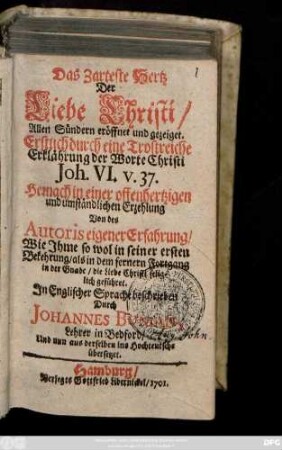 Das Zarteste Hertz
Der
Liebe Christi/
Allen Sündern eröffnet und gezeiget.
Erstlich durch eine Trostreiche
Erklährung der Worte Christi
Joh. VI. v. 37.
Hernach in einer offenhertzigen
und umständlichen Erzehlung
Von des
Autoris eigener Erfahrung/
Wie Ihme so wol in seiner ersten
Bekehrung/als in dem fernern Fortgang
in der Gnade/die Liebe Christi selig-
lich geführet.
In Englischer Sprache beschrieben
Durch
JOHANNES
Lehrer in Bedford/
Und nun aus derselben ins Hochteutsche
übersetzet.
Hamburg/
Verlegts Gottfried Liebernickel/1701.